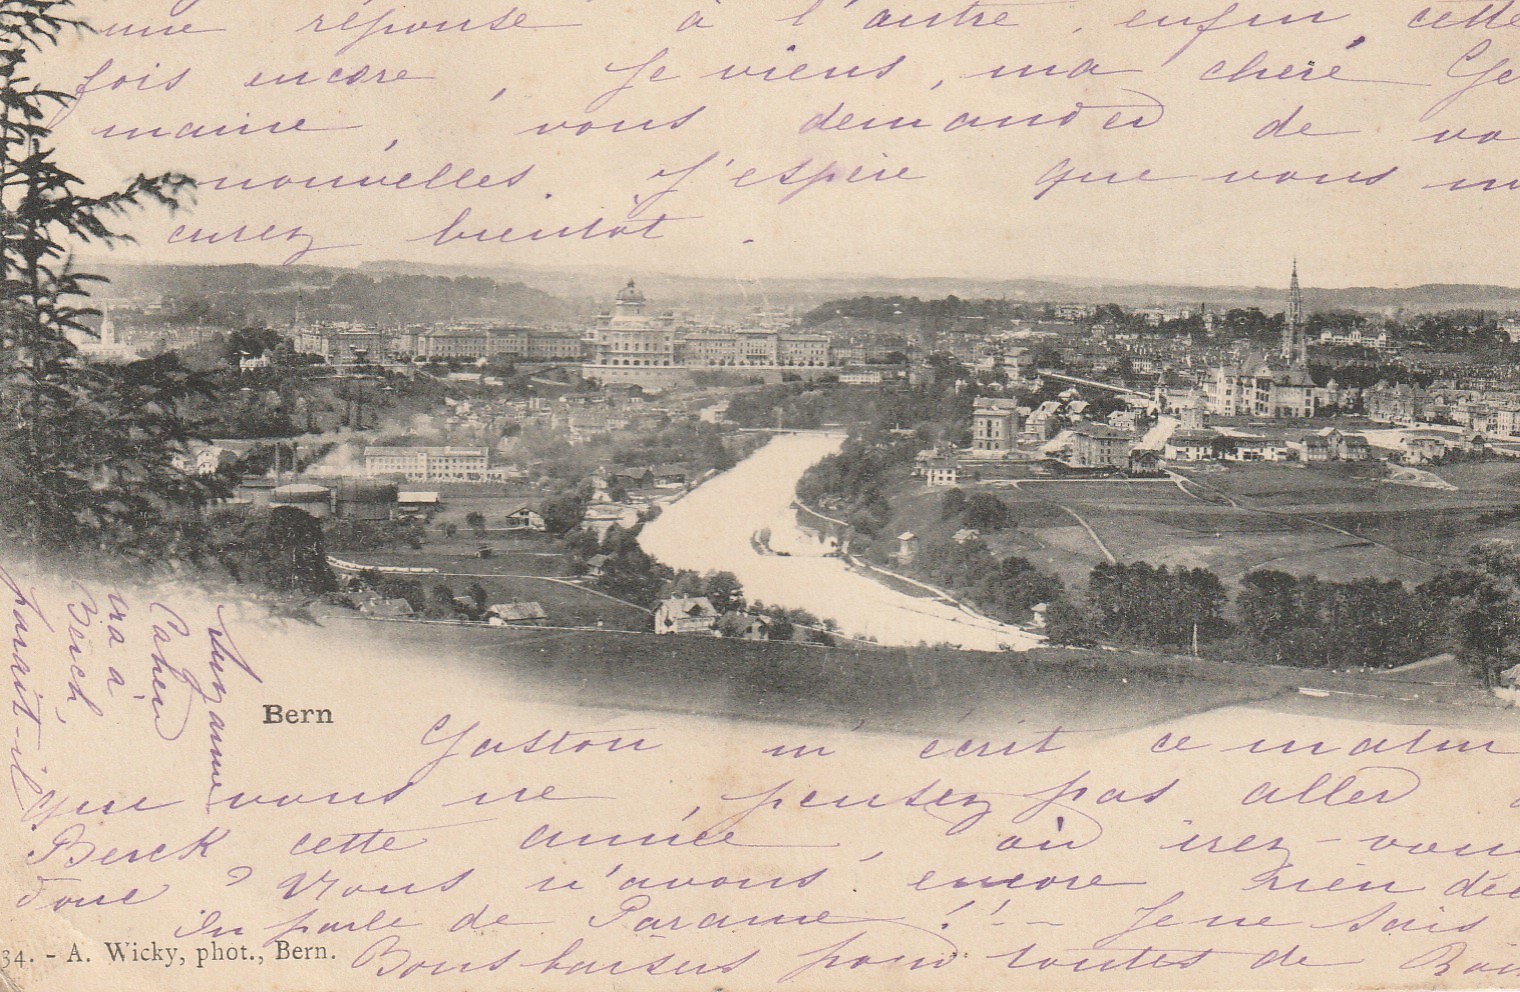 une réponse à l'autre, enfin cette
fois encore, je viens, ma chère Ger
maine, vous demander de vo
nouvelles. J'espère que vous m'
bientôt.
Gaston m'écrit ce matin
que vous ne, pensez pas aller
Berck cette année, où irez-vous
donc? Nous n'avons encore rien déc
On parle de Parame!! - Je ne sais
Bons baisers pour toutes de
Suzanne
Cahen
ira à
Berck,
parait-il
Bern
34. - A. Wicky, phot., Bern.